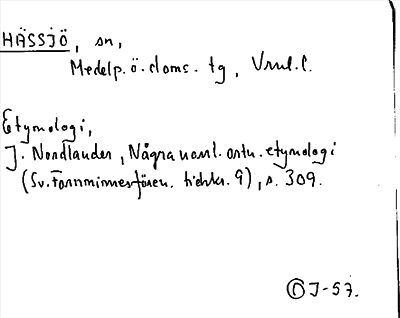 HÄSSJÖ, sn,
Medelp. ö. doms. tg, Vnnl. l.
Etymologi,
J. Nordlander, Några norrl. ortn. etymologi
(Sv. Fornminnesfören. tidskr. 9), s. 309.
J-57.